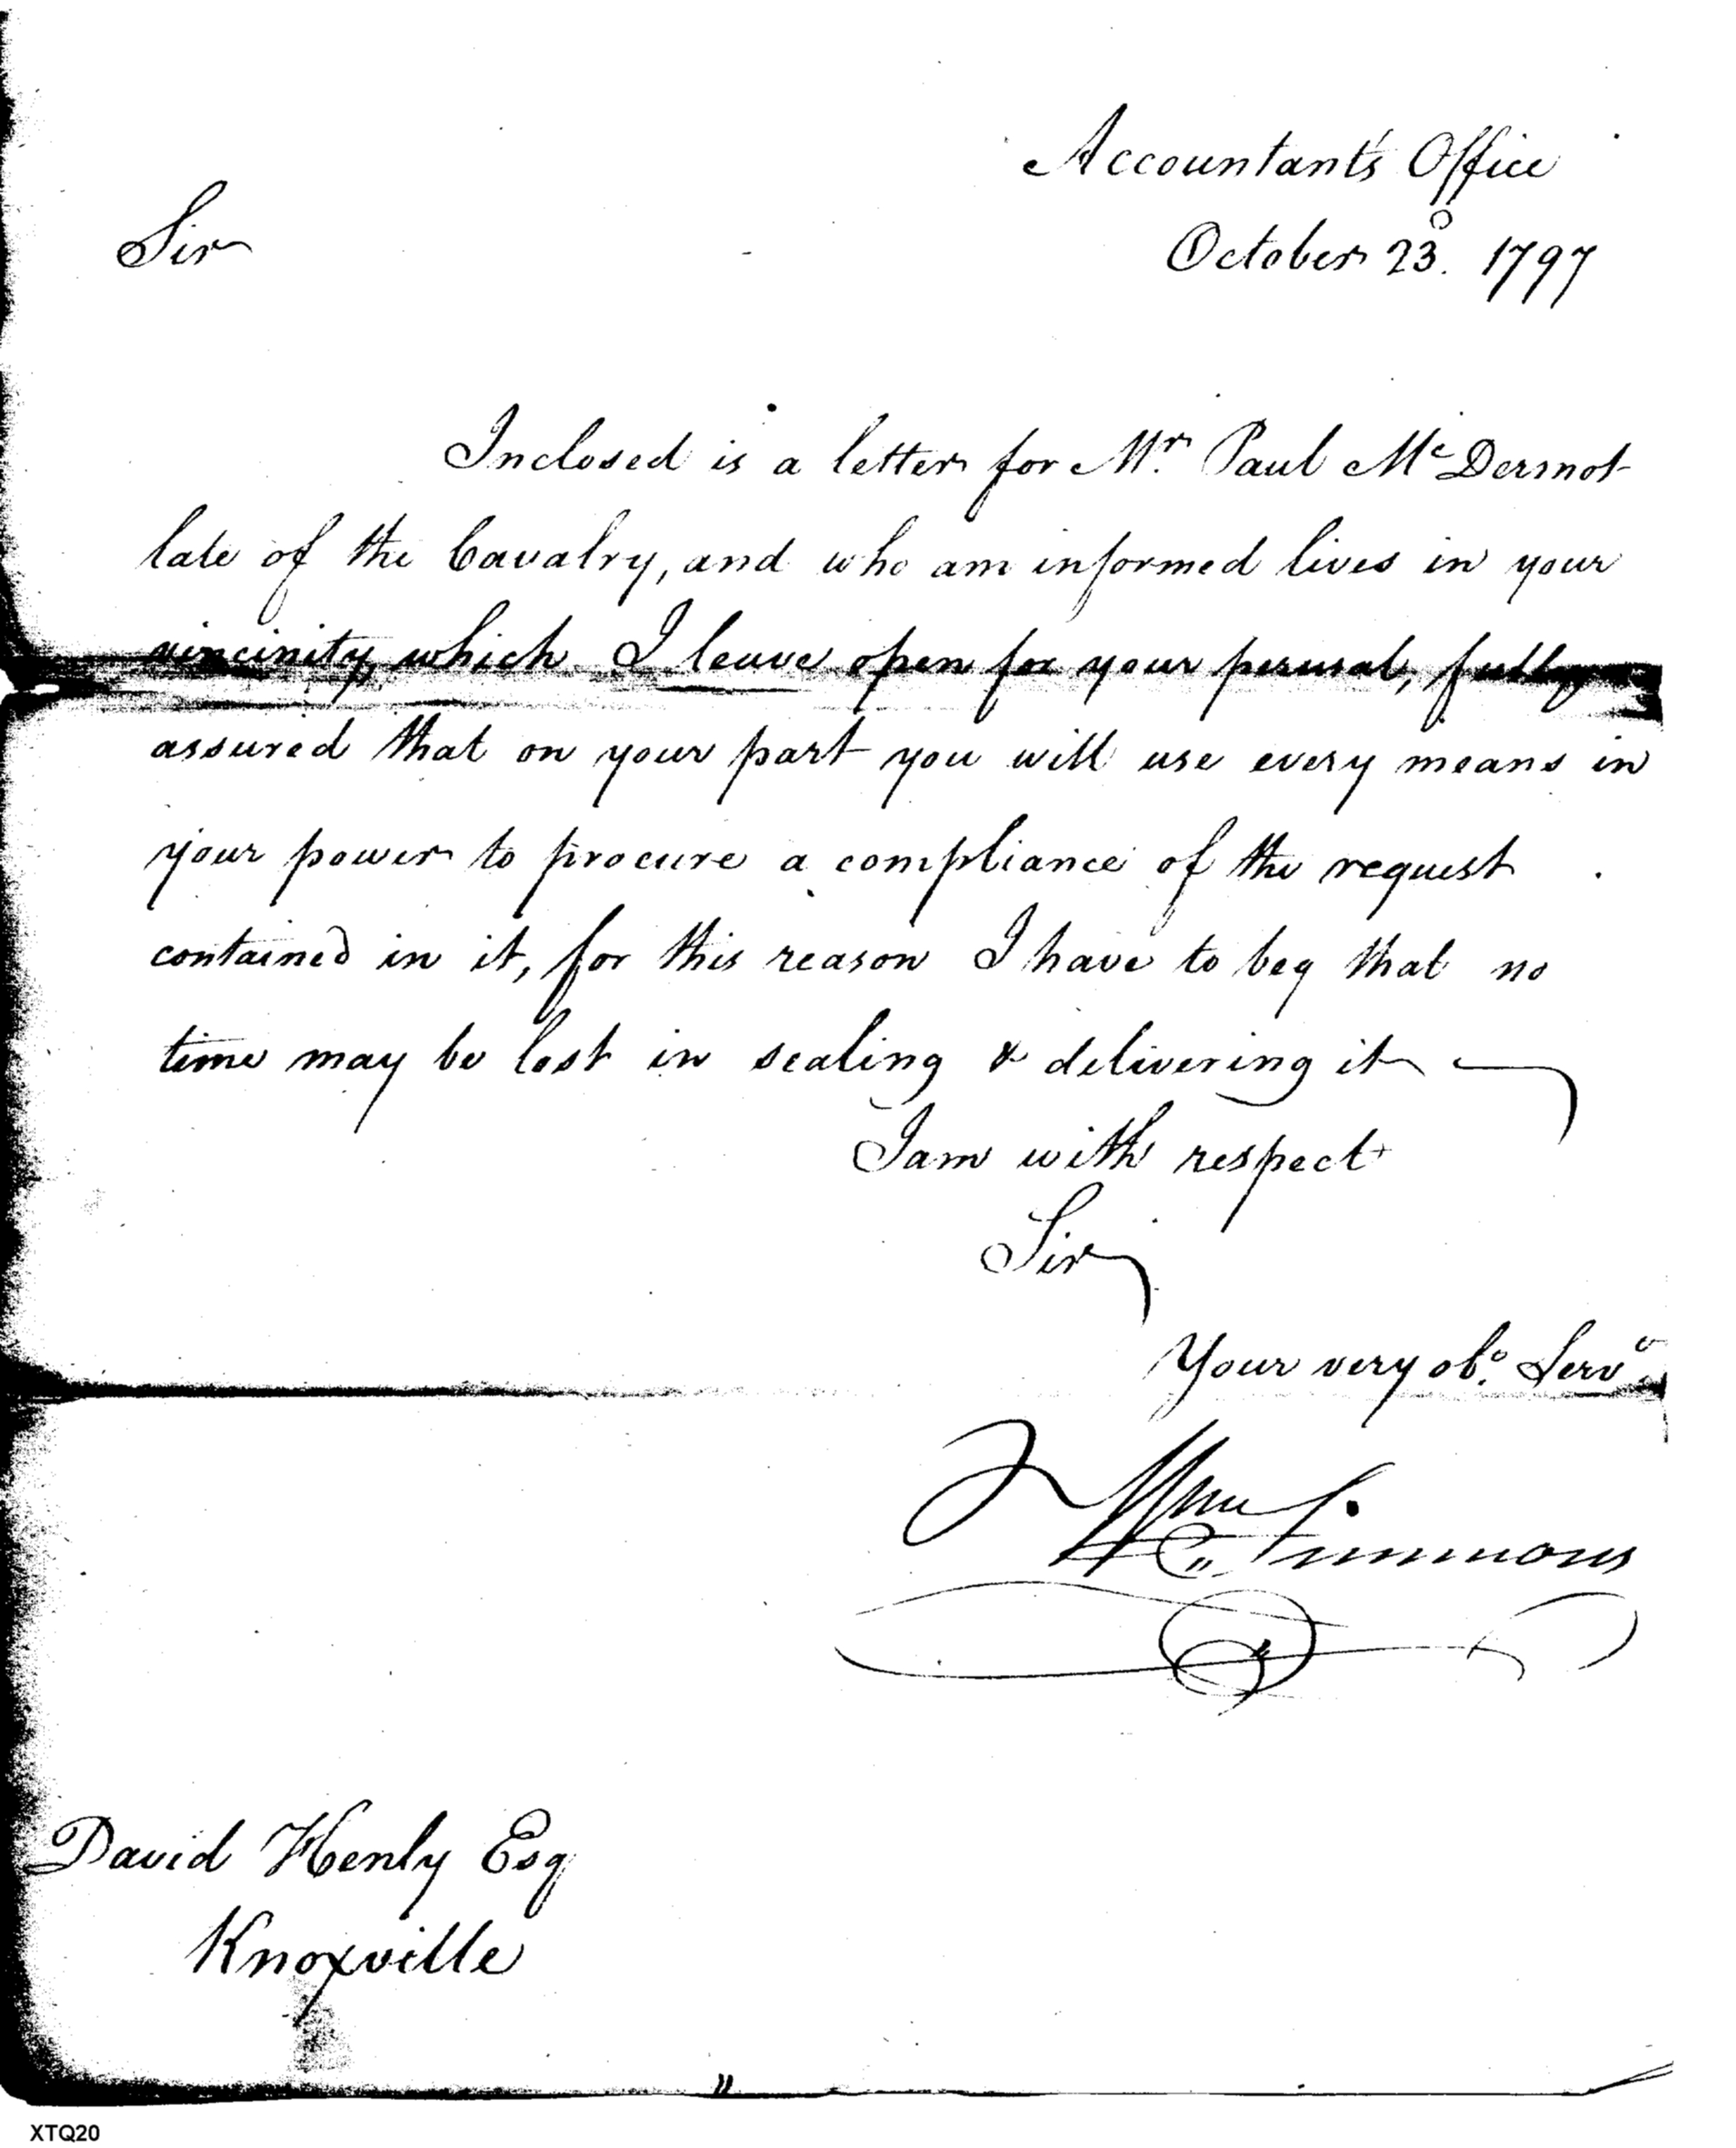 Accountant's Office
Sir
October 23d. 1797
Inclosed is a letter for Mr. Paul McDermot
late of the Cavalry, and who am informed lives in your
vincinity, which I leave open for your perusal, fully
assured that on your part you will use every means in
your power to procure a compliance of the request
contained in it, for this reason I have to beg that no
time may be lost in sealing & delivering it
I am with respect
Sir
Your very ob. Serv
Wm Simmons
David Henly Esq
Knoxville
XTQ20